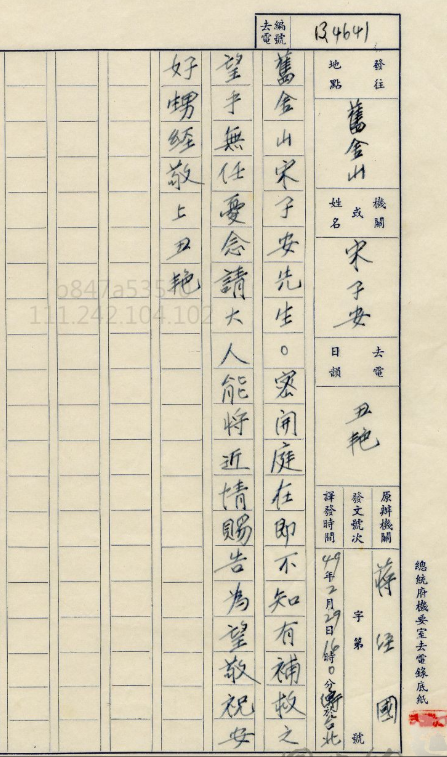 總統府機要室去電錄底紙
去電編號
4641
發往地點
舊金山
機關或姓名
宋子安
去電日韻
丑艷
原辦機關
蔣經國
發文號次
字第 號
譯發時間
49年2月29日16時0分 台北
舊金山宋子安先生。密開庭在即不知有補救之
望乎無任憂念請大人能將近情賜告為望敬祝安
好甥經敬上丑艷
111.242.104.102